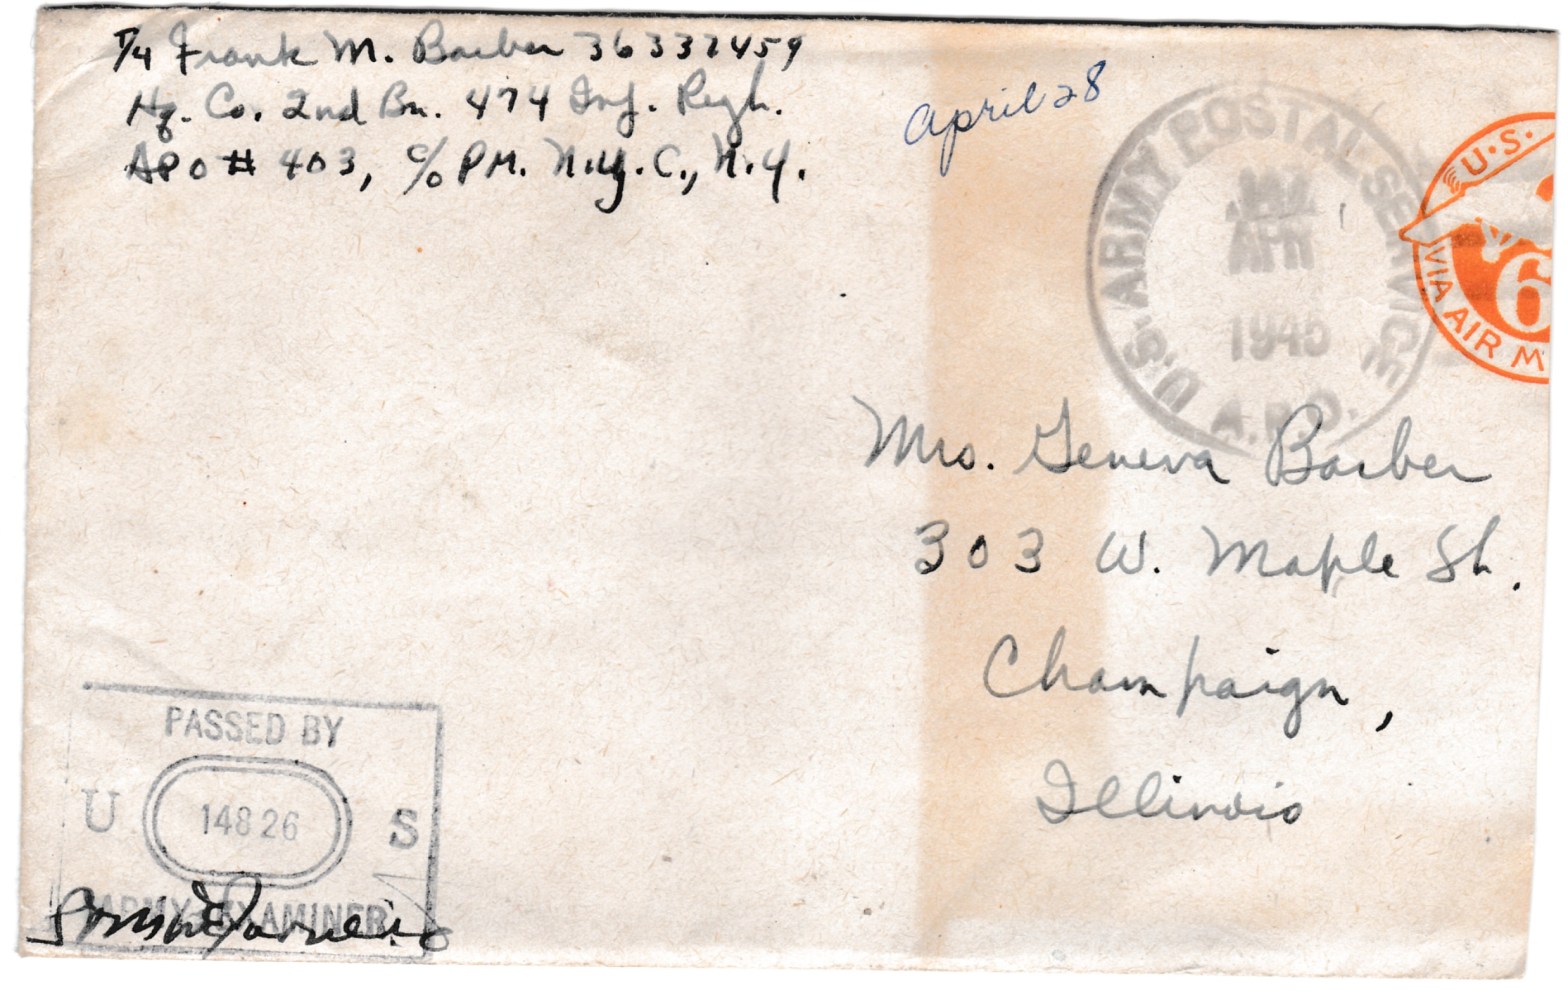 T/4 Frank M. Barber 36337459
Hq. Co. 2nd Bn. 474 Inf. Regt.
APO # 403, c/o PM. N.Y.C., N.Y.
April 28
U.S. ARMY POSTAL SERVICE
APR
1945
A.P.O.
U.S.
6
VIA AIR M
Mrs. Geneva Barber
303 W. Maple St.
Champaign,
Illinois
PASSED BY
U 14826 S
ARMY EXAMINER